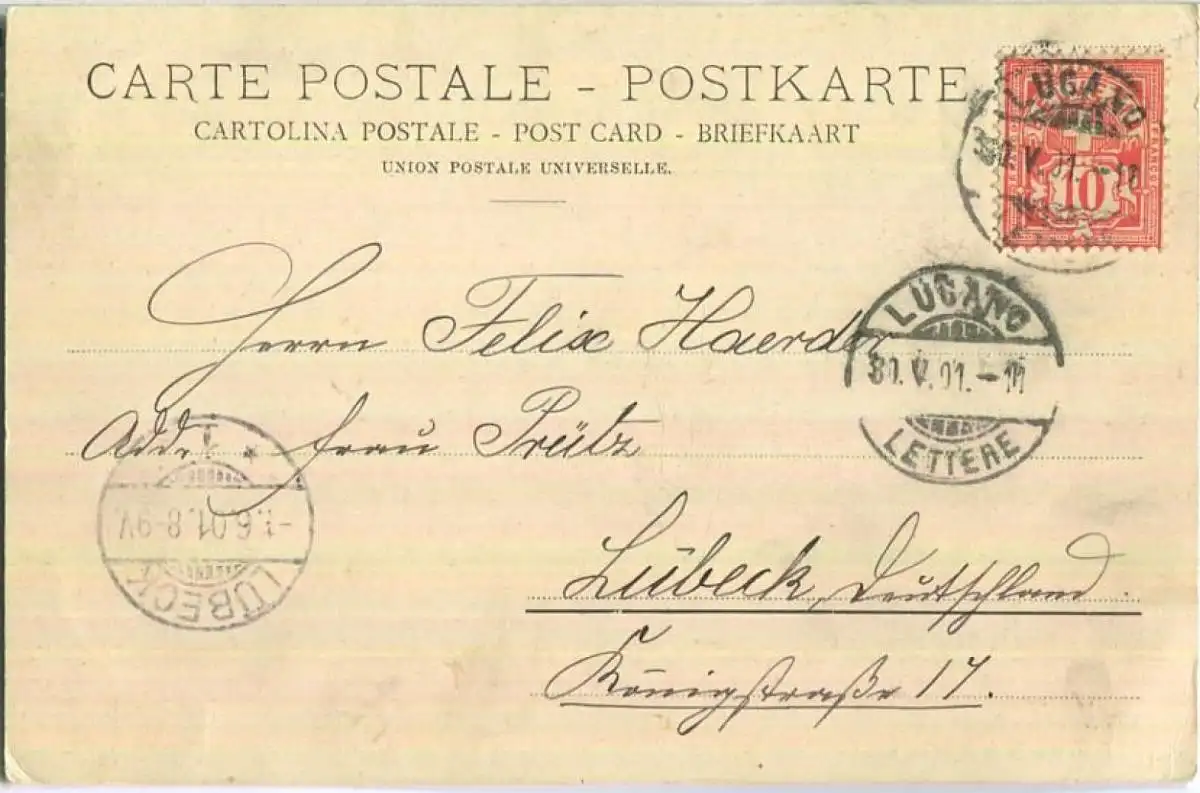 CARTE POSTALE - POSTKARTE
CARTOLINA POSTALE - POST CARD - BRIEFKAART
UNION POSTALE UNIVERSELLE.
LUGANO
30.V.01.-10
FRANCO
10
LUGANO
30.V.01.-
LETTERE
Herrn Felix Haerder
Addr. Frau Prütz
LÜBECK
-1.6.01.8-9V.
1
*
Lübeck, Deutschland.
Königstraße 17.